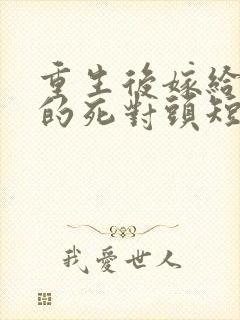 重生後嫁給
的死對頭短
我愛世人